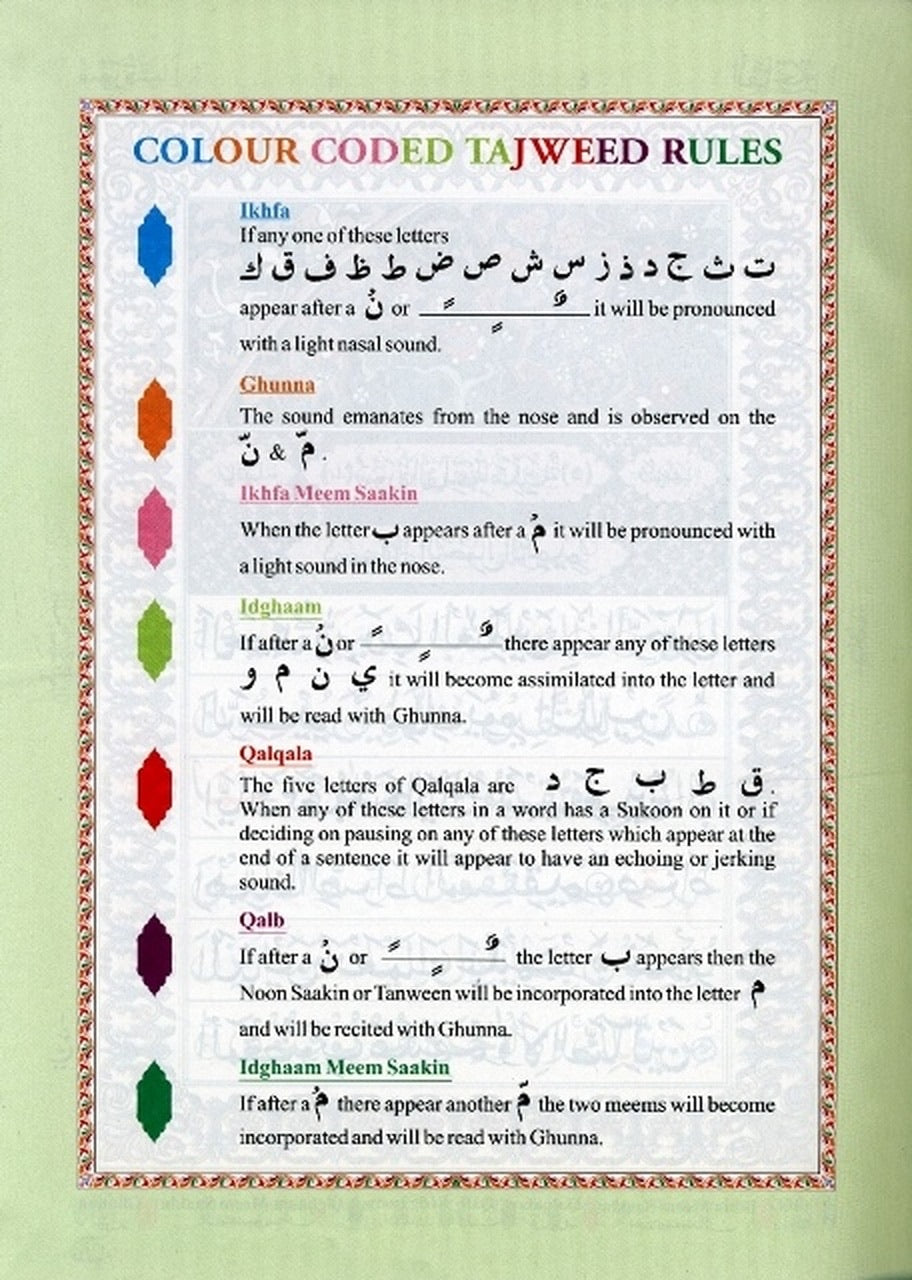 COLOUR CODED TAJWEED RULES
Ikhfa
If any one of these letters
ت ث ج د ذ ز س ش ص ض ط ظ ف ق ك
appear after a نْ or ـًـٍـٌ it will be pronounced
with a light nasal sound.
Ghunna
The sound emanates from the nose and is observed on the
نّ & مّ .
Ikhfa Meem Saakin
When the letter ب appears after a مْ it will be pronounced with
a light sound in the nose.
Idghaam
If after a نْ or ـًـٍـٌ there appear any of these letters
و م ن ي it will become assimilated into the letter and
will be read with Ghunna.
Qalqala
The five letters of Qalqala are د ج ب ط ق .
When any of these letters in a word has a Sukoon on it or if
deciding on pausing on any of these letters which appear at the
end of a sentence it will appear to have an echoing or jerking
sound.
Qalb
If after a نْ or ـًـٍـٌ the letter ب appears then the
Noon Saakin or Tanween will be incorporated into the letter م
and will be recited with Ghunna.
Idghaam Meem Saakin
If after a مْ there appear another مّ the two meems will become
incorporated and will be read with Ghunna.